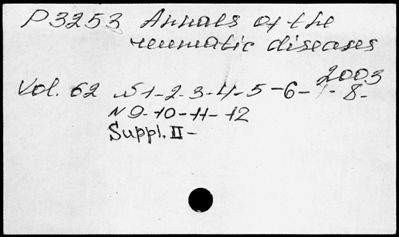 P3253 Annals of the
reumatic diseases
2003
Vol. 62 N 1-2-3-4-5-6-7-8-
N 9-10-11-12
Suppl. II-